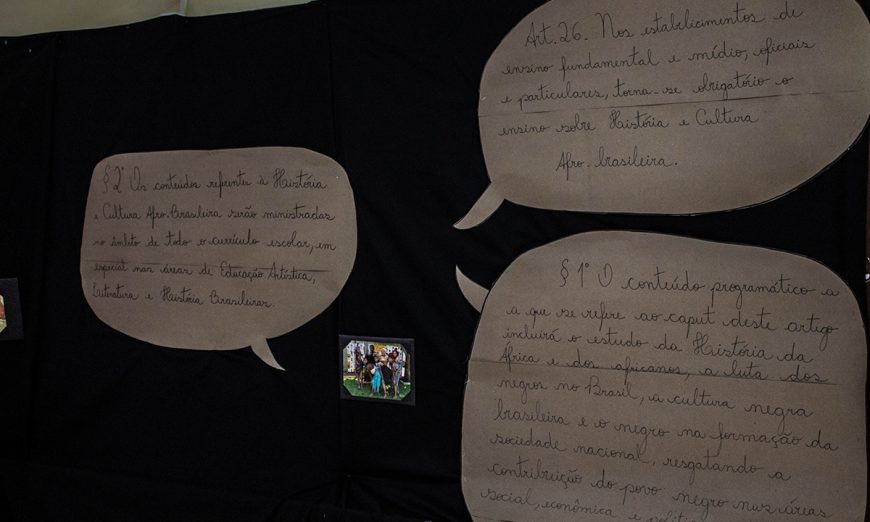 Art. 26. Nos estabelicimentos de
ensino fundamental e médio, oficiais
e particulares, torna-se obrigatório o
ensino sobre História e Cultura
Afro-brasileira.
§ 1° O conteúdo programático a
a que se refere ao caput deste artigo
incluirá o estudo da História da
África e dos africanos, a luta dos
negros no Brasil, a cultura negra
brasileira e o negro na formação da
sociedade nacional, resgatando a
contribuição do povo negro nas áreas
social, econômica e
§ 2° Os conteúdos referentes à História
e Cultura Afro-Brasileira serão ministradas
no âmbito de todo o currículo escolar, em
especial nas áreas de Educação Artística,
Literatura e História Brasileiras.